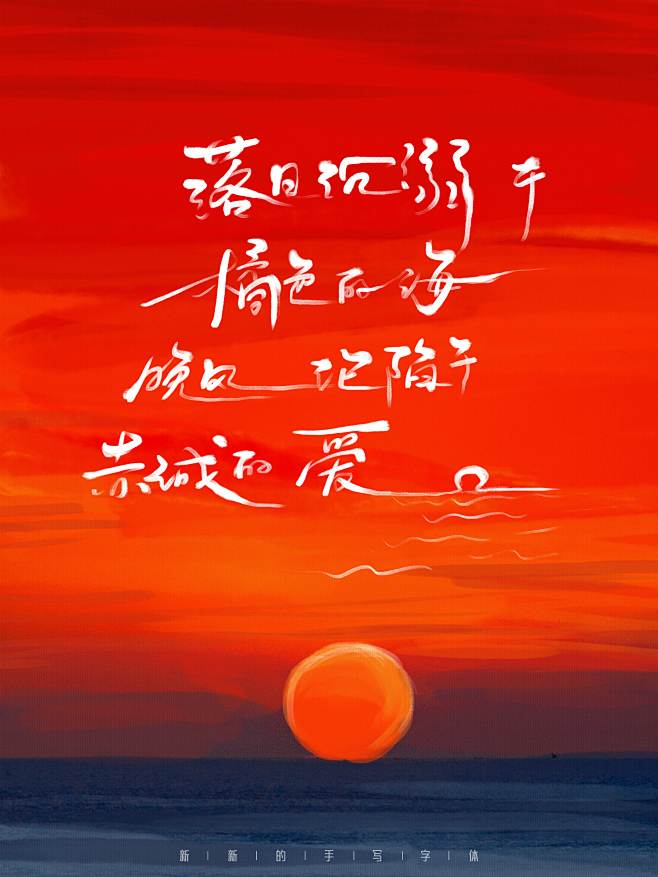 落日沉溺于
橘色的海
晚风沦陷于
赤诚的爱
新新的手写字体